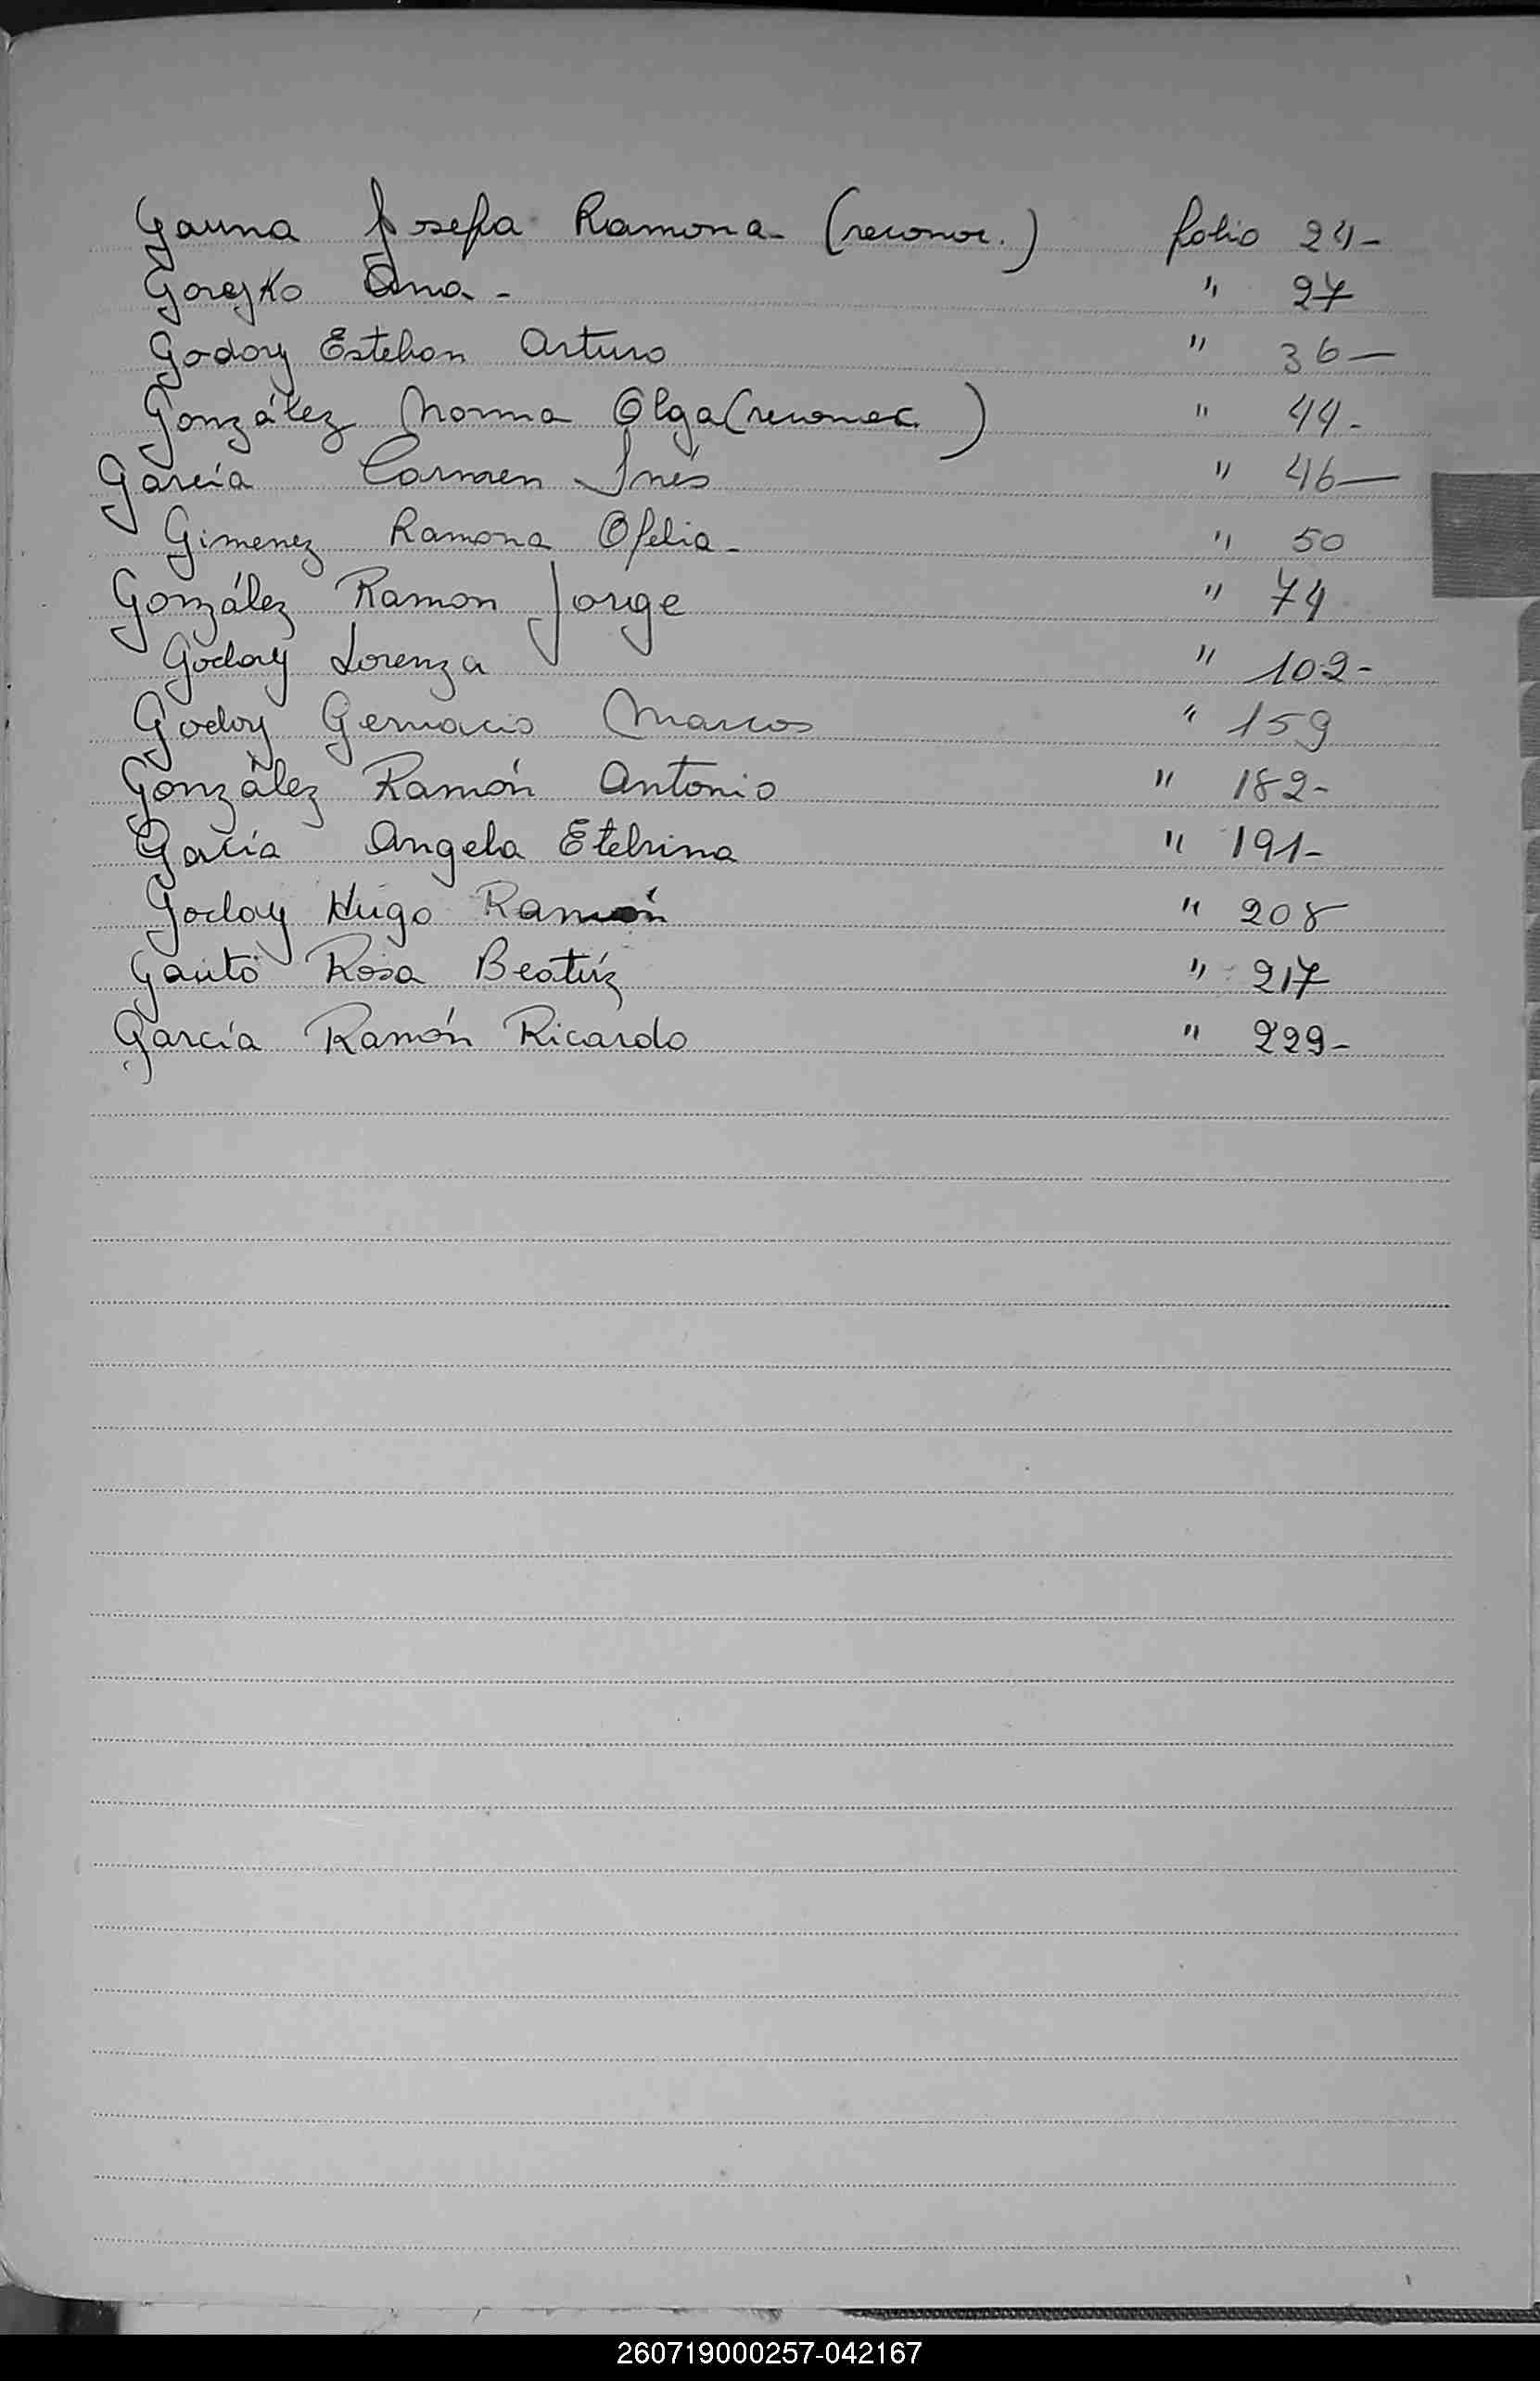 Gauna Josefa Ramona - (reconoc.) folio 24 -
Gorejko Ana - " 27
Godoy Esteban Arturo " 36 —
González Norma Olga (reconoc.) " 44 -
García Carmen Inés " 46 —
Gimenez Ramona Ofelia - " 50
González Ramon Jorge " 74
Godoy Lorenza " 102 -
Godoy Gervacio Marcos " 159
González Ramón Antonio " 182 -
García Angela Etelvina " 191 -
Godoy Hugo Ramón " 208
Gauto Rosa Beatríz " 217
García Ramón Ricardo " 229 -
260719000257-042167